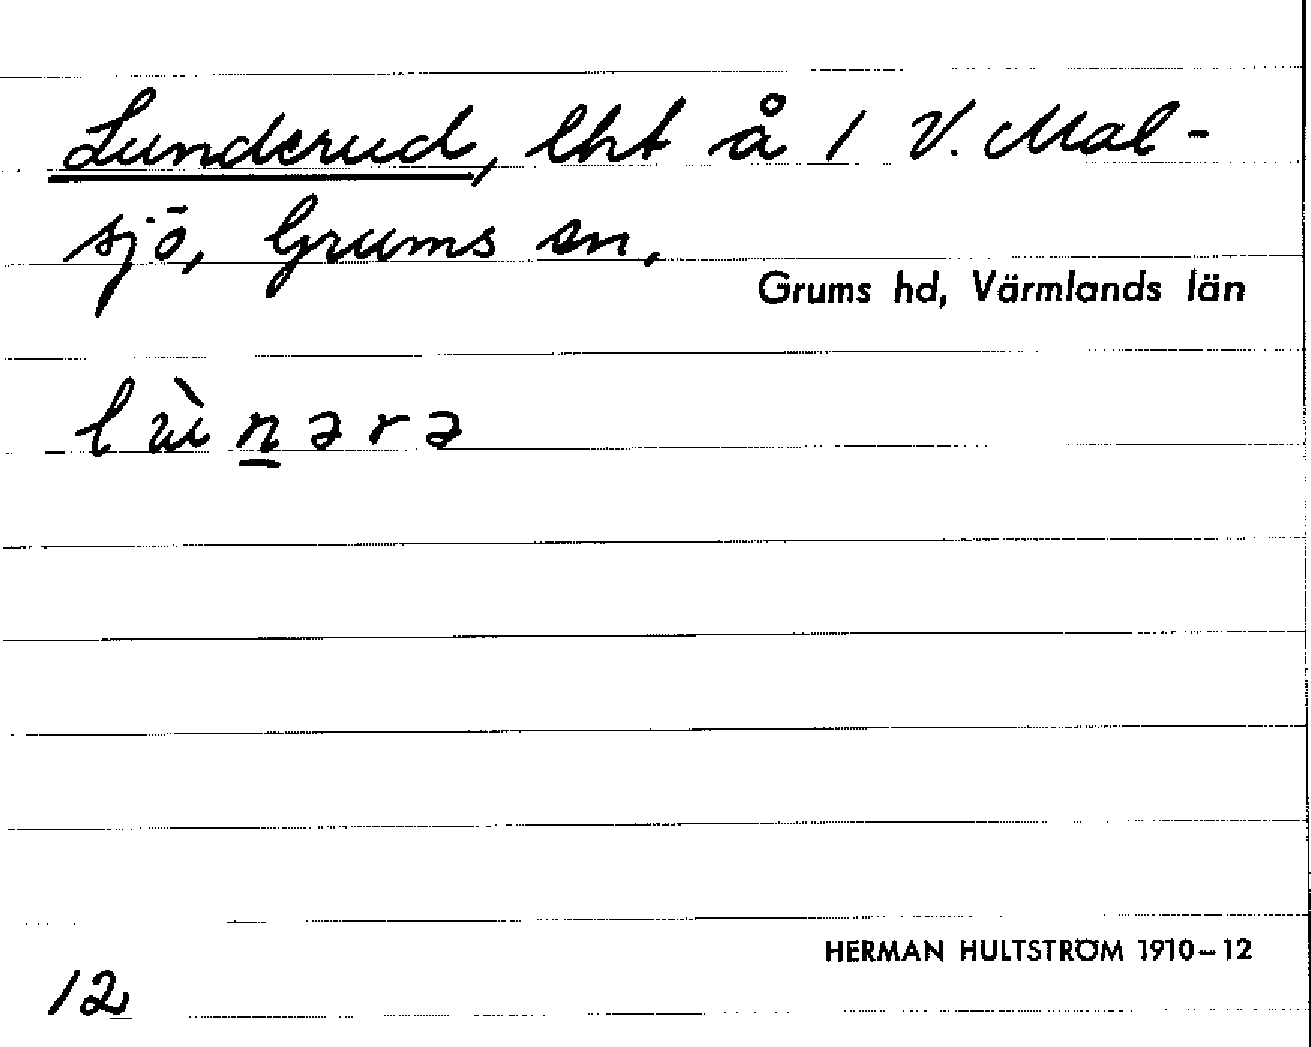 Lunderud, lht å 1 V. Mal-
sjö, Grums sn,
Grums hd, Värmlands län
lùn̲ərə
HERMAN HULTSTRÖM 1910–12
12